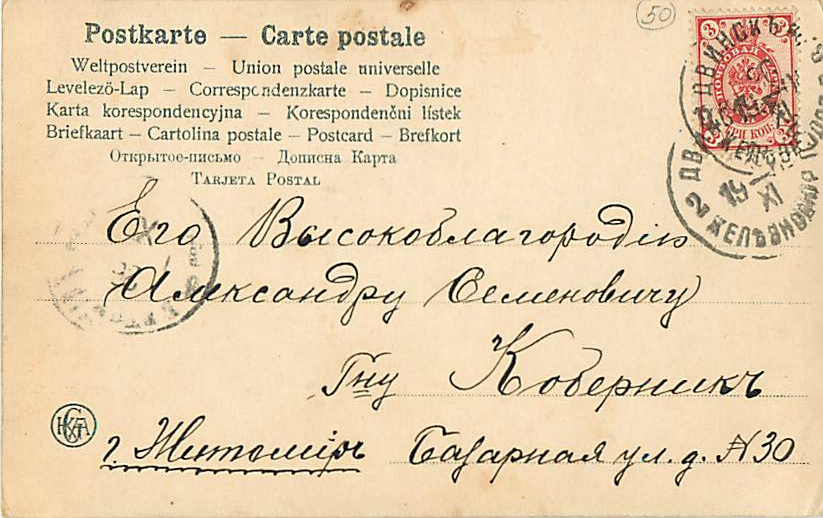 50
Postkarte — Carte postale
Weltpostverein – Union postale universelle
Levelezö-Lap – Correspondenzkarte – Dopisnice
Karta korespondencyjna – Korespondenční lístek
Briefkaart – Cartolina postale – Postcard – Brefkort
Открытое-письмо – Дописна Карта
Tarjeta Postal
3 3
ПОЧТОВАЯ
ТРИ КОП.
2 ДВИНСКЪ
19
XI
ЖЕЛѢЗНОДОР
Его Высокоблагородію
Александру Семеновичу
Гну Коберникъ
г. Житоміръ Базарная ул. д. № 30